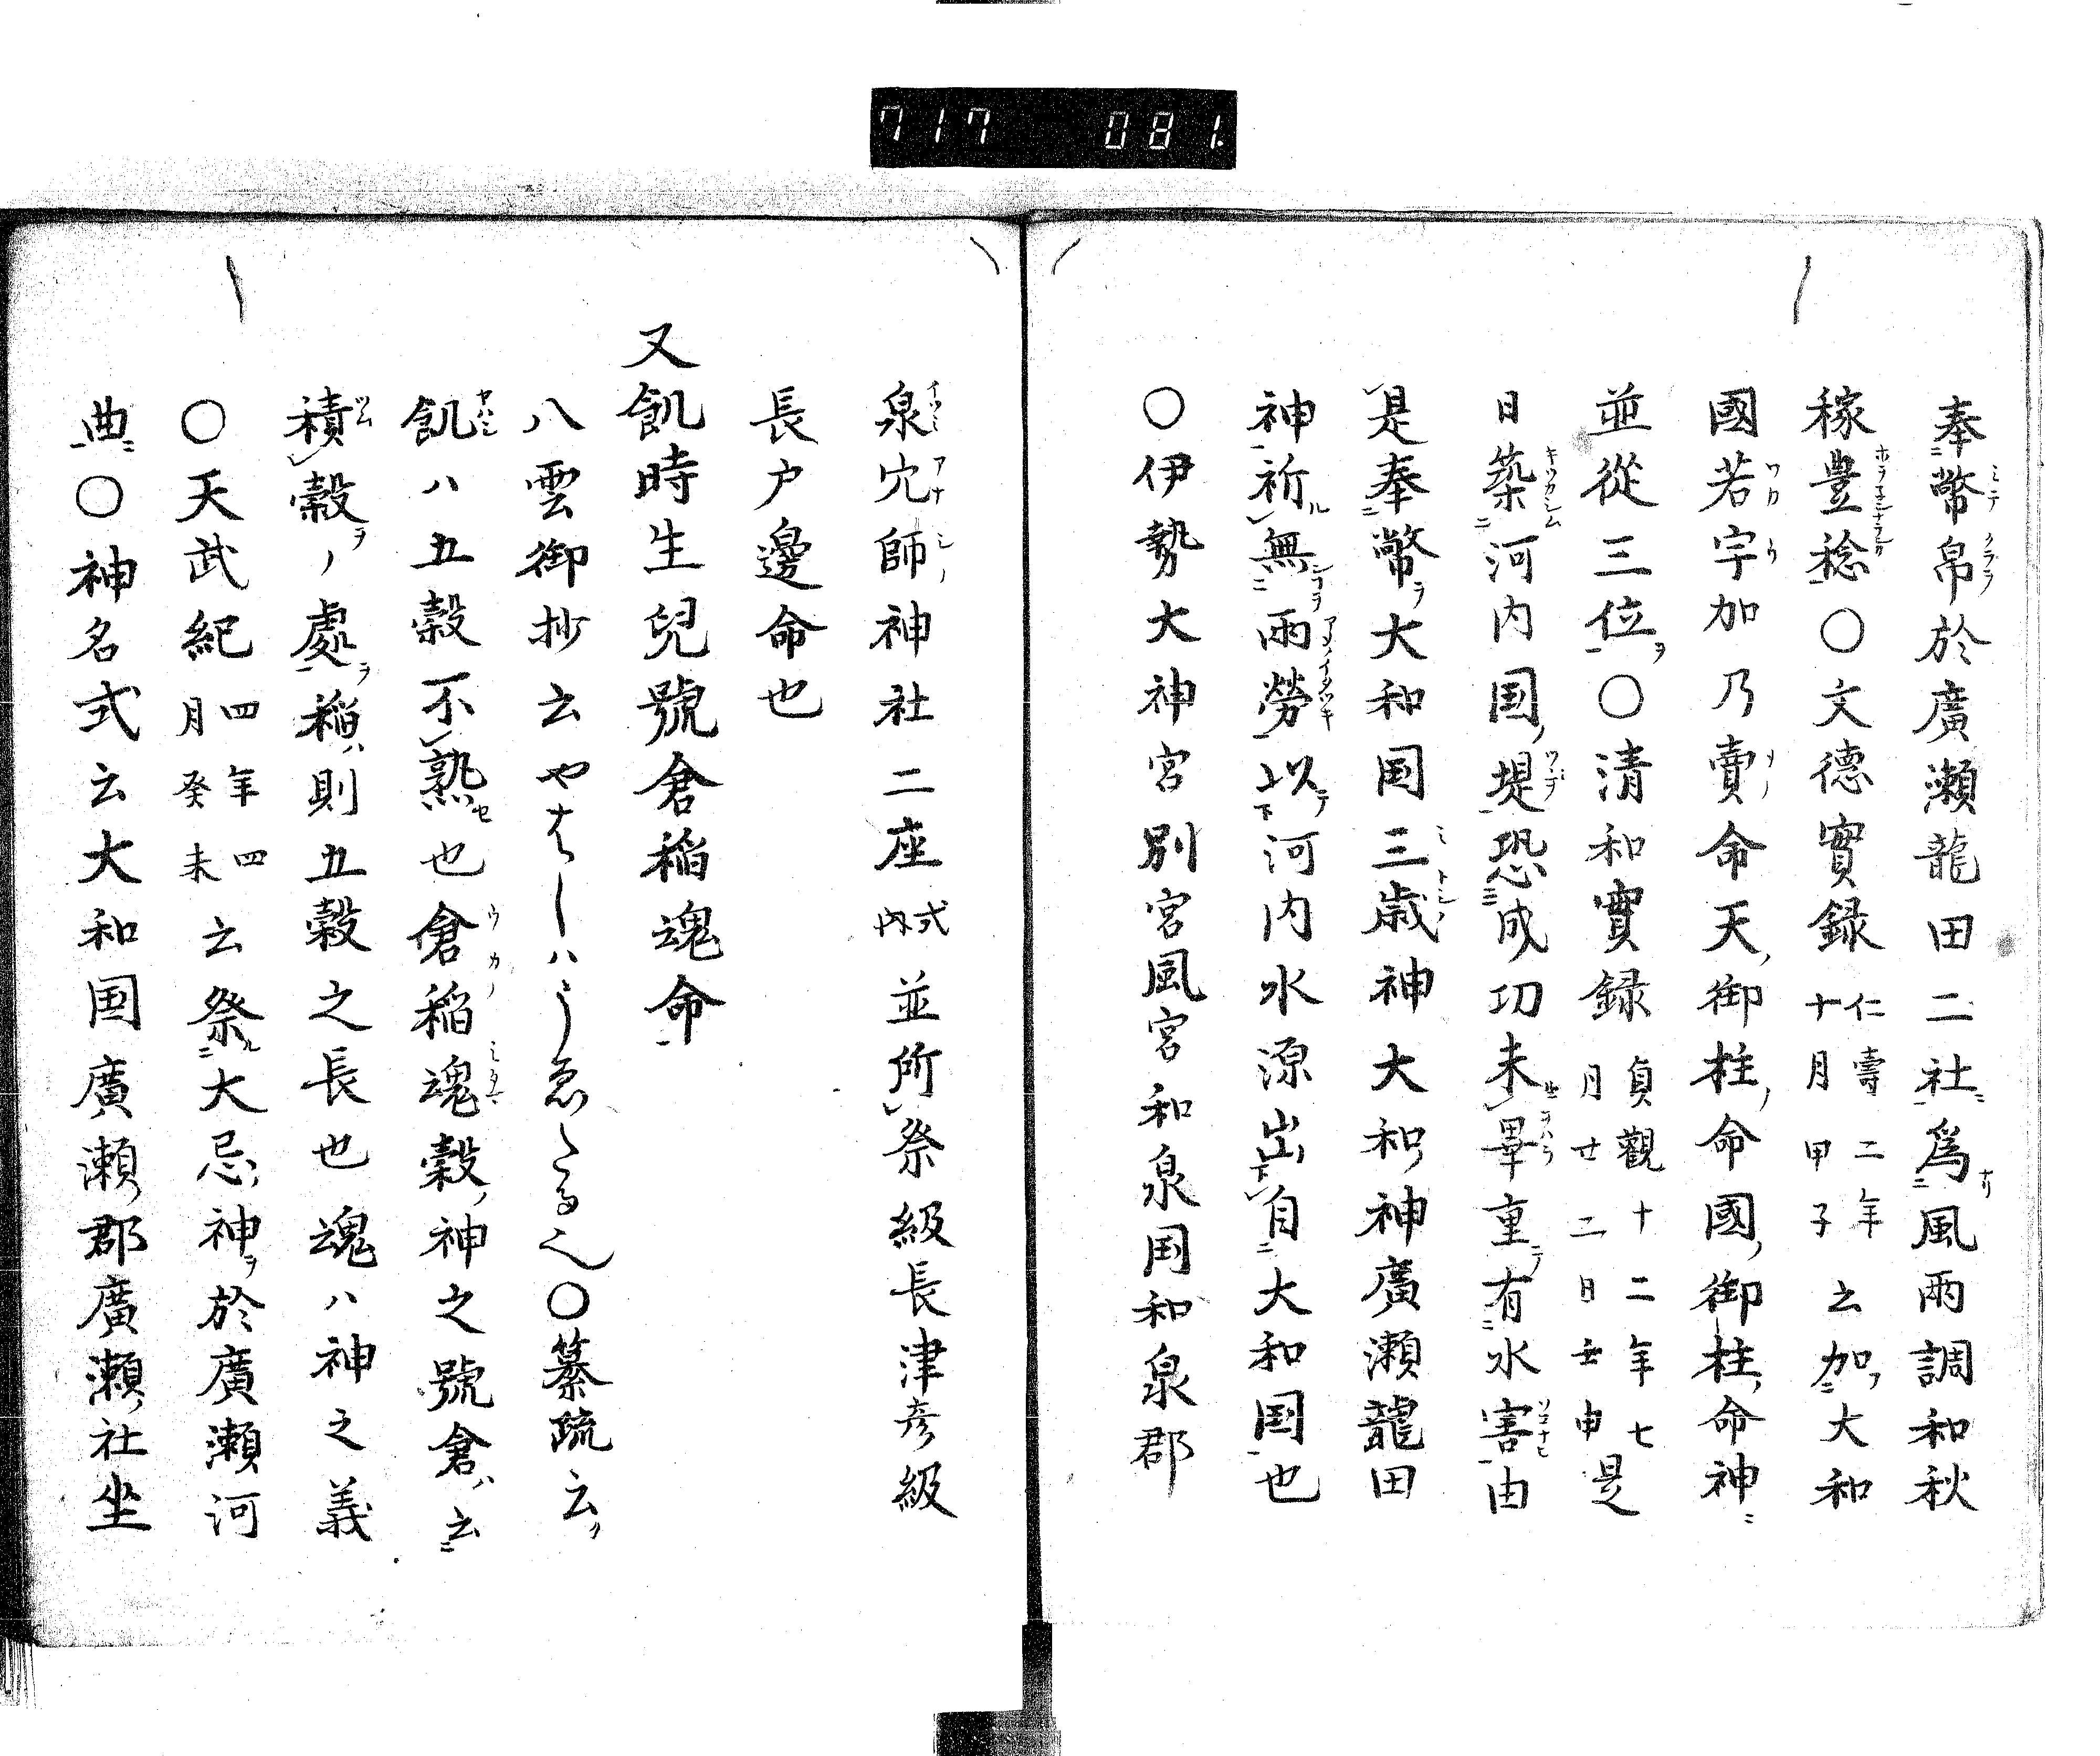 717 081.
奉幣帛於廣瀬龍田二社為風雨調和秋
稼豊稔〇文德實録仁壽二年十月甲子云加大和
國若宇加乃賣命天御柱命國御柱命神
並從三位〇清和實録貞觀十二年七月廿二日壬申是
日築河内国堤恐成功未畢重有水害由
是奉幣大和国三歳神大和神廣瀬龍田
神祈無雨勞以河内水源出自大和国也
〇伊勢大神宮別宮風宮和泉国和泉郡
泉穴師神社二座式内並所祭級長津彦級
長戸邊命也
又飢時生兒號倉稲魂命
八雲御抄云やはしハうゑたる也〇纂疏云
飢ハ五穀不熟也倉稲魂穀神之號倉ハ云
積穀ノ處稲ハ則五穀之長也魂ハ神之義
〇天武紀四年四月癸未云祭大忌神於廣瀬河
曲〇神名式云大和国廣瀬郡廣瀬社坐